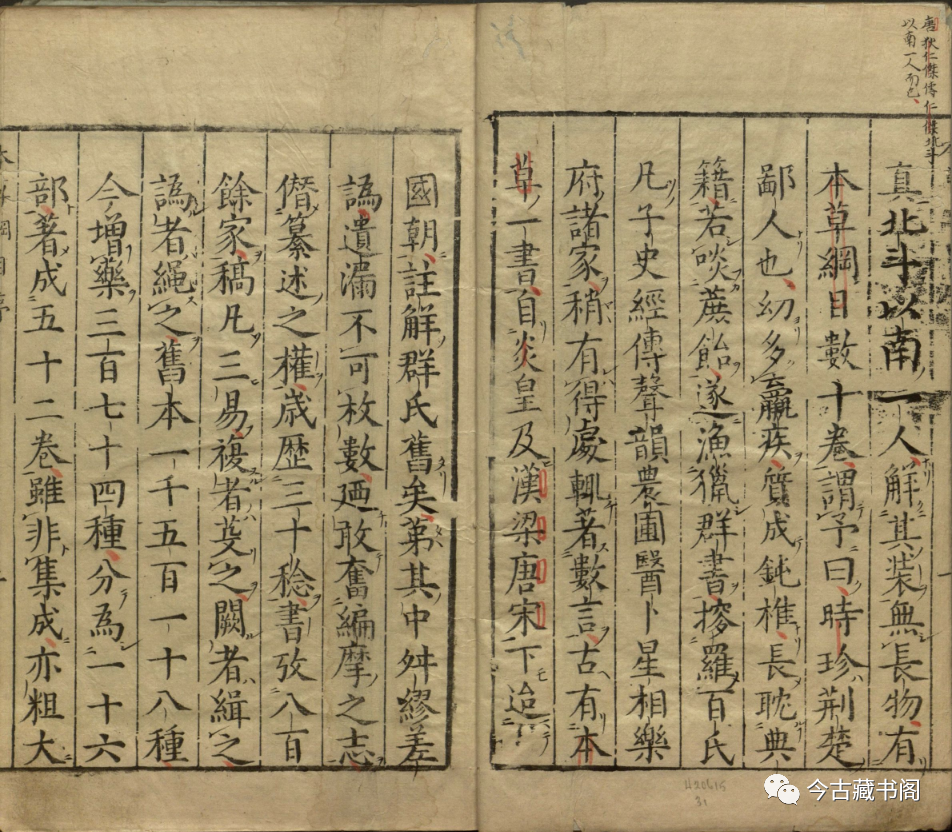 唐狄仁傑傳仁傑北斗
以南一人而已
真北斗以南一人解其装無長物有
本草綱目數十卷謂予曰時珍荆楚
鄙人也幼多羸疾質成鈍椎長耽典
籍若啖蔗飴遂漁獵群書搜羅百氏
凡子史經傳聲韻農圃醫卜星相樂
府諸家稍有得處輒著數言古有本
草一書自炎皇及漢梁唐宋下迨
國朝註解群氏舊矣第其中舛繆差
譌遺漏不可枚數廼敢奮編摩之志
僭纂述之權歲歴三十稔書攷八百
餘家稿凡三易複者芟之闕者緝之
譌者繩之舊本一千五百一十八種
今增藥三百七十四種分為一十六
部著成五十二卷雖非集成亦粗大
今古藏书阁